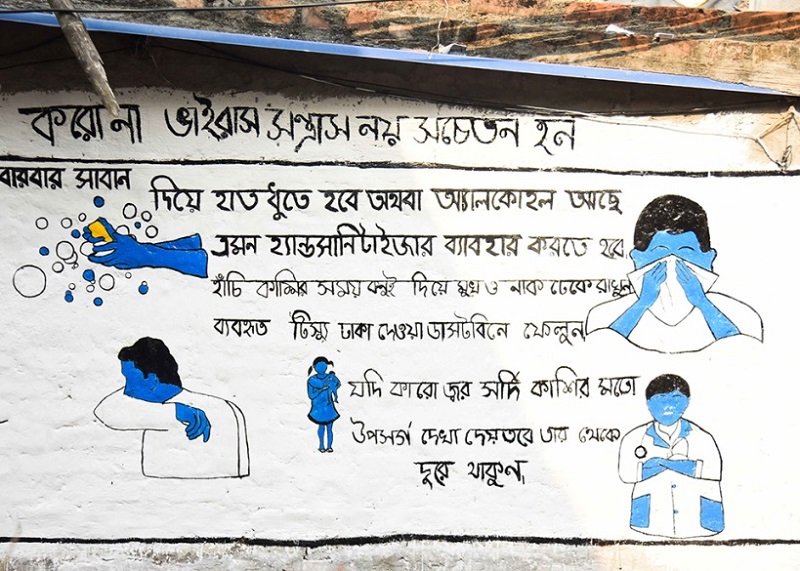 করোনা ভাইরাস সন্ত্রাস নয় সচেতন হন
বারবার সাবান
দিয়ে হাত ধুতে হবে অথবা অ্যালকোহল আছে
এমন হ্যান্ডসানিটাইজার ব্যাবহার করতে হবে,
হাঁচি কাশির সময় কনুই দিয়ে মুখ ও নাক ঢেকে রাখুন
ব্যবহৃত টিস্যু ঢাকা দেওয়া ডাসটবিনে ফেলুন
যদি কারো জ্বর সর্দি কাশির মতো
উপসর্গ দেখা দেয় তবে তার থেকে
দূরে থাকুন,